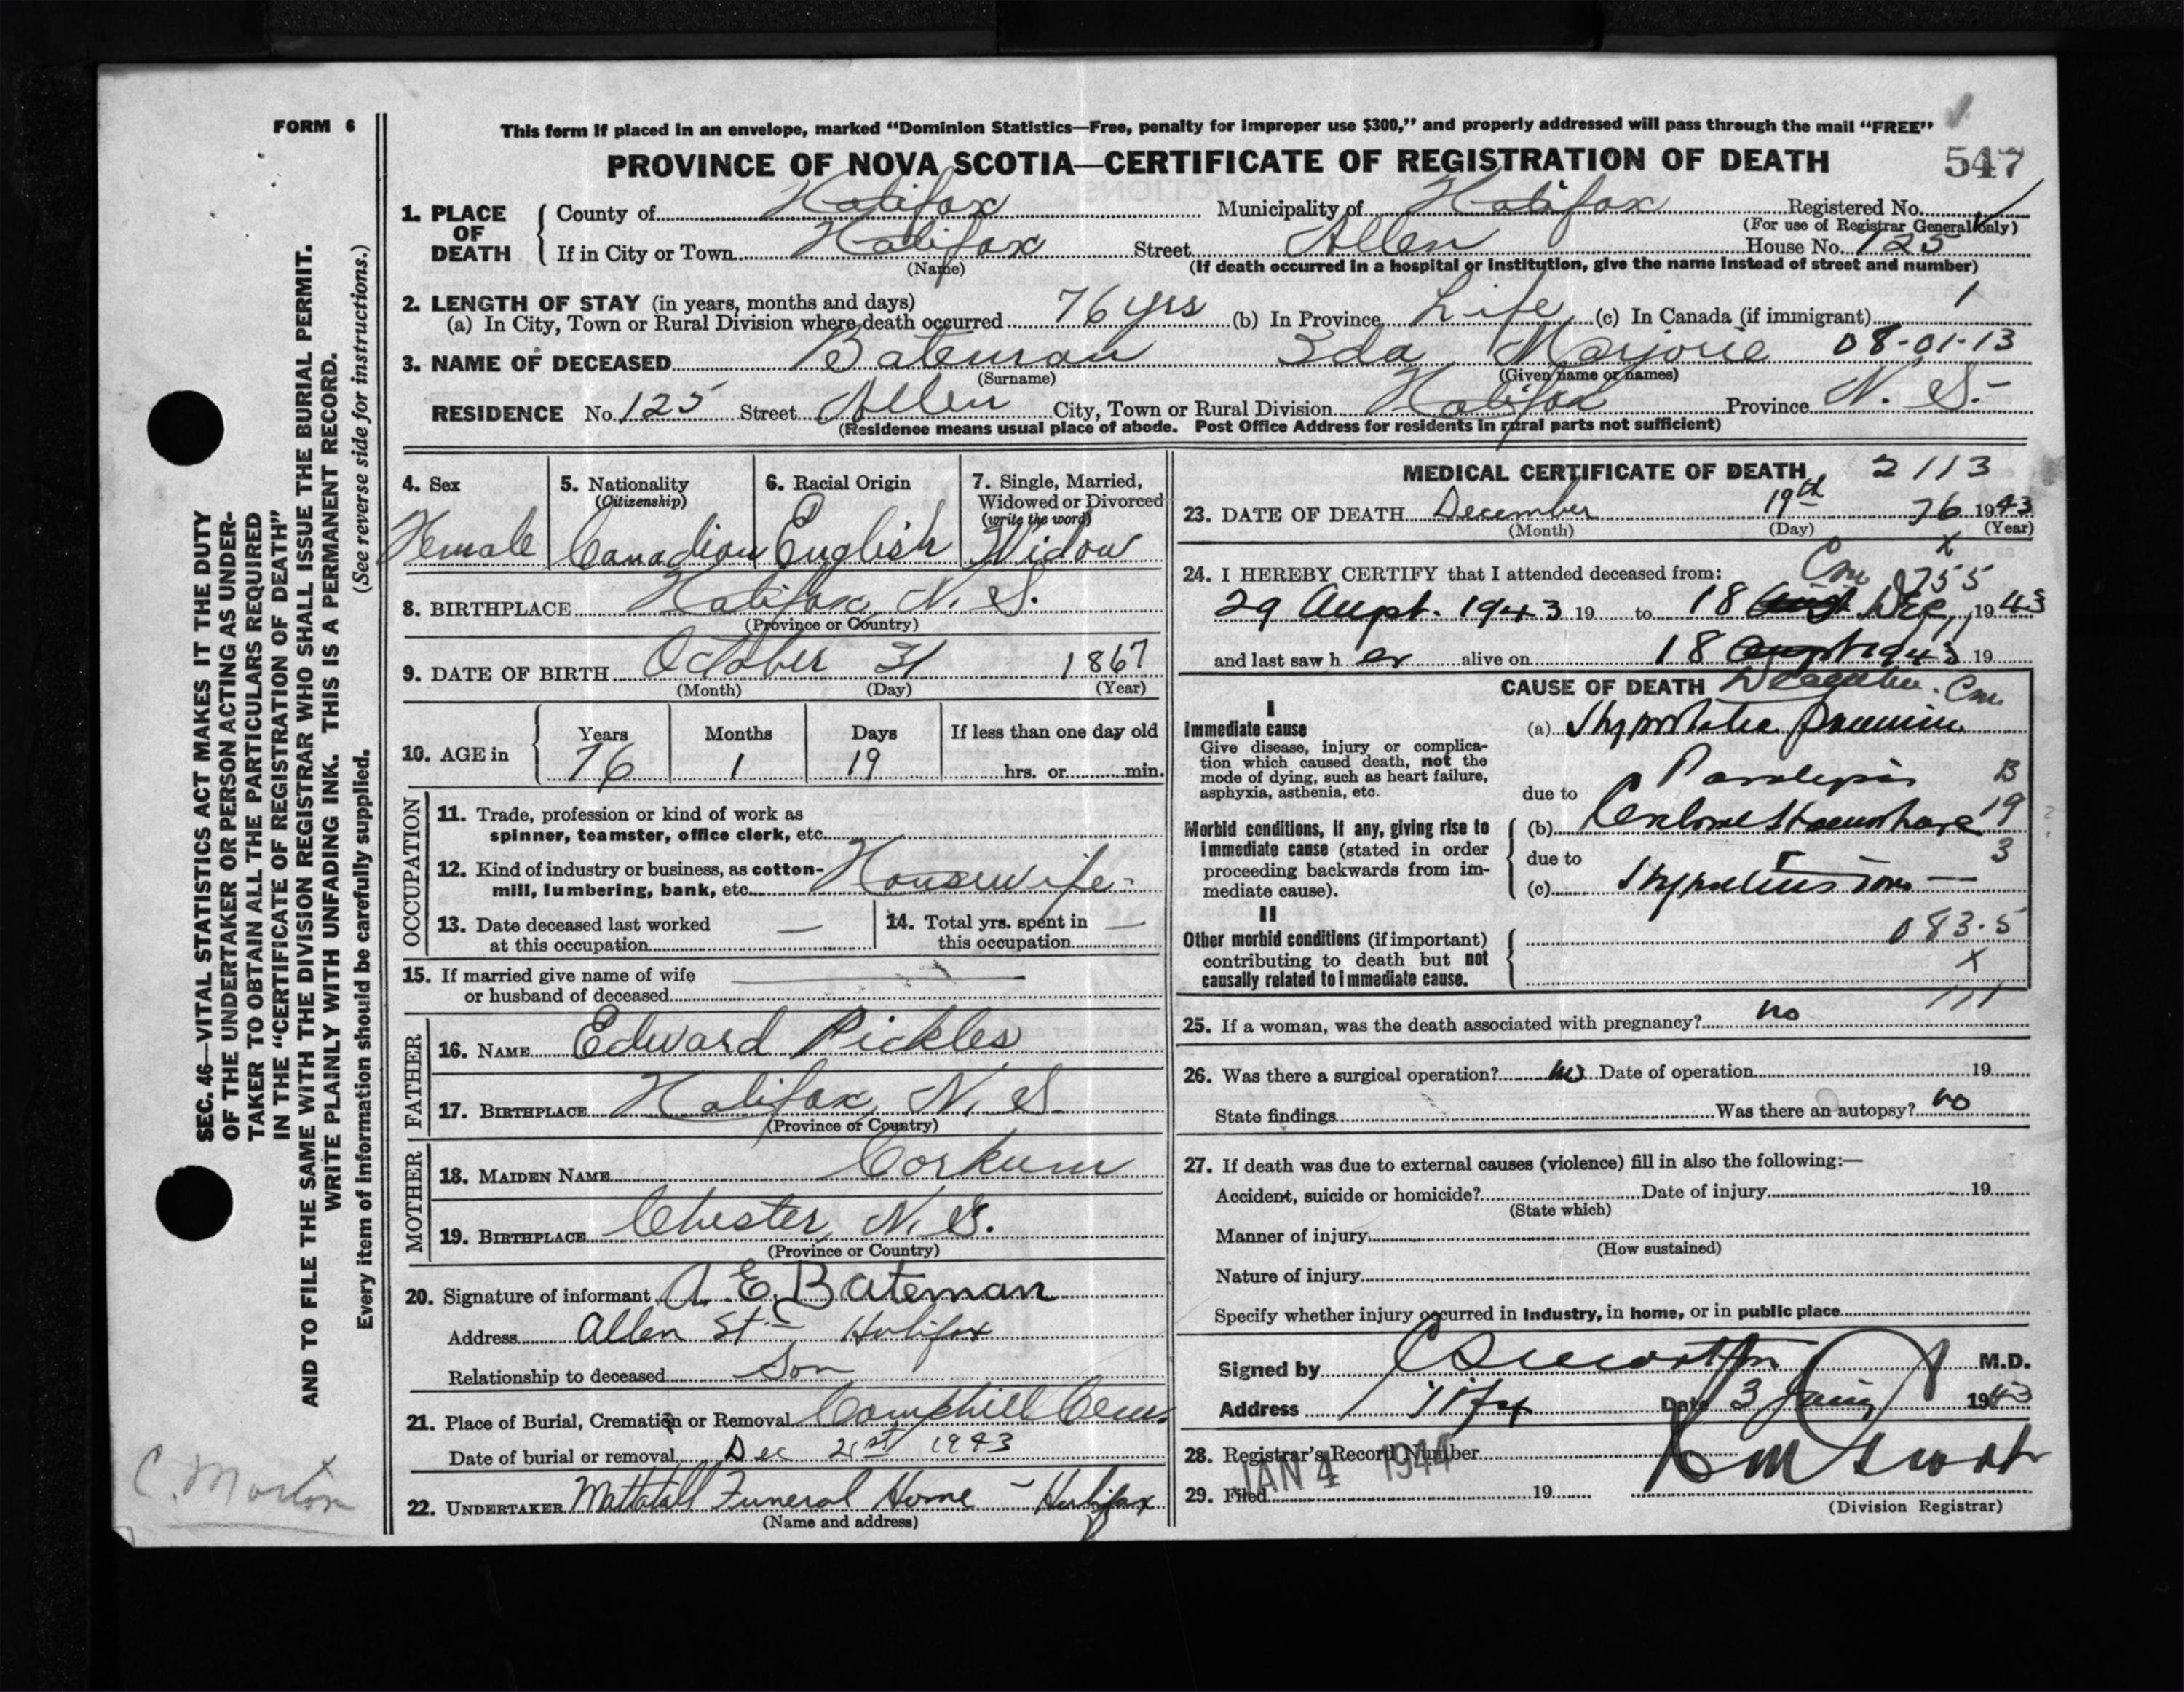 FORM 6
This form if placed in an envelope, marked “Dominion Statistics—Free, penalty for improper use $300,” and properly addressed will pass through the mail “FREE”
PROVINCE OF NOVA SCOTIA—CERTIFICATE OF REGISTRATION OF DEATH 547
SEC. 46—VITAL STATISTICS ACT MAKES IT THE DUTY
OF THE UNDERTAKER OR PERSON ACTING AS UNDER-
TAKER TO OBTAIN ALL THE PARTICULARS REQUIRED
IN THE “CERTIFICATE OF REGISTRATION OF DEATH”
AND TO FILE THE SAME WITH THE DIVISION REGISTRAR WHO SHALL ISSUE THE BURIAL PERMIT.
WRITE PLAINLY WITH UNFADING INK. THIS IS A PERMANENT RECORD.
Every item of information should be carefully supplied. (See reverse side for instructions.)
C. Morton
1. PLACE OF DEATH
County of Halifax Municipality of Halifax Registered No.
(For use of Registrar General only)
If in City or Town Halifax Street Allen House No. 125
(Name) (If death occurred in a hospital or institution, give the name instead of street and number)
2. LENGTH OF STAY (in years, months and days)
(a) In City, Town or Rural Division where death occurred 76 yrs (b) In Province Life (c) In Canada (if immigrant) 1
3. NAME OF DECEASED Bateman Ida Marjorie 08-01-13
(Surname) (Given name or names)
RESIDENCE No. 125 Street Allen City, Town or Rural Division Halifax Province N. S.
(Residence means usual place of abode. Post Office Address for residents in rural parts not sufficient)
4. Sex Female
5. Nationality (Citizenship) Canadian
6. Racial Origin English
7. Single, Married, Widowed or Divorced (write the word) Widow
8. BIRTHPLACE Halifax, N. S.
(Province or Country)
9. DATE OF BIRTH October 31 1867
(Month) (Day) (Year)
10. AGE in Years 76 Months 1 Days 19 If less than one day old
hrs. or min.
OCCUPATION
11. Trade, profession or kind of work as
spinner, teamster, office clerk, etc.
12. Kind of industry or business, as cotton-
mill, lumbering, bank, etc. Housewife-
13. Date deceased last worked
at this occupation —
14. Total yrs. spent in
this occupation —
15. If married give name of wife
or husband of deceased
FATHER
16. NAME Edward Pickles
17. BIRTHPLACE Halifax, N. S.
(Province or Country)
MOTHER
18. MAIDEN NAME Corkum
19. BIRTHPLACE Chester, N. S.
(Province or Country)
20. Signature of informant A. E. Bateman
Address Allen St Halifax
Relationship to deceased Son
21. Place of Burial, Cremation or Removal Camphill Cem.
Date of burial or removal Dec 21st 1943
22. UNDERTAKER Mattatall Funeral Home - Halifax
(Name and address)
MEDICAL CERTIFICATE OF DEATH 2113
23. DATE OF DEATH December 19th 76 1943
(Month) (Day) (Year)
24. I HEREBY CERTIFY that I attended deceased from:
29 1943 19 to 18 Dec 1943
and last saw her alive on 18 1943 19
CAUSE OF DEATH
I
Immediate cause
Give disease, injury or complica-
tion which caused death, not the
mode of dying, such as heart failure,
asphyxia, asthenia, etc.
(a) Hypostatic Pneumonia
Paralysis B
due to
Morbid conditions, if any, giving rise to
immediate cause (stated in order
proceeding backwards from im-
mediate cause).
(b) Cerebral Haemorrhage 19
due to 3
(c) Hypertension —
II
Other morbid conditions (if important)
contributing to death but not
causally related to immediate cause.
083.5
X
25. If a woman, was the death associated with pregnancy? no
26. Was there a surgical operation? no Date of operation 19
State findings Was there an autopsy? no
27. If death was due to external causes (violence) fill in also the following:—
Accident, suicide or homicide? Date of injury 19
(State which)
Manner of injury
(How sustained)
Nature of injury
Specify whether injury occurred in Industry, in home, or in public place
Signed by M.D.
Address Hfx Date 3 1943
28. Registrar's Record Number
JAN 4 1944
29. Filed 19
(Division Registrar)